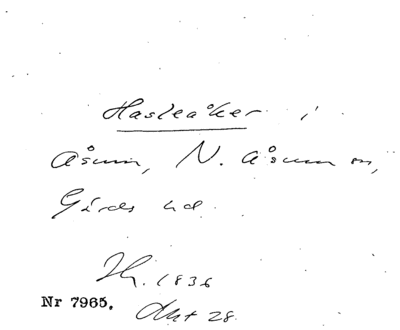 Hasleåker i
Åsum, N. Åsum sn,
Gärds hd.
Th. 1836
Nr 7965. Akt 28